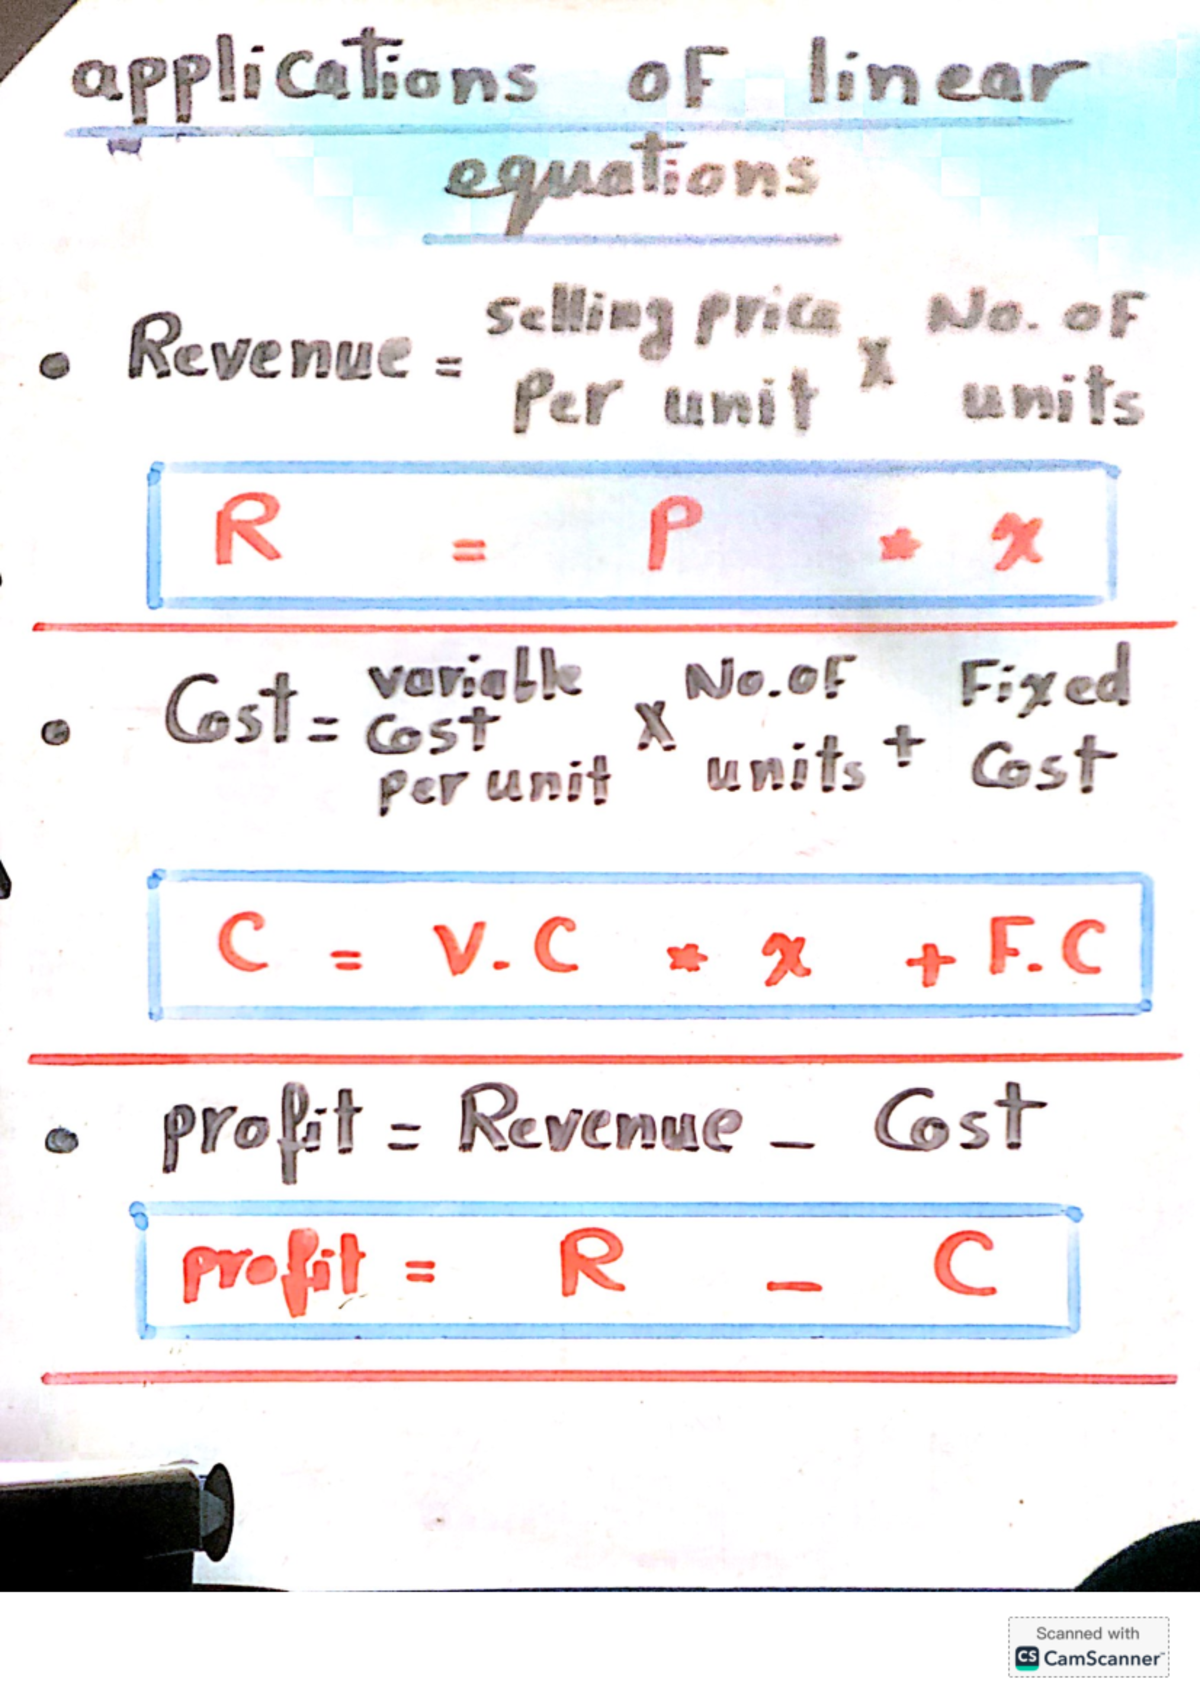 applications of linear
equations
• Revenue = selling price per unit x No. of units
R = P * x
• Cost = variable cost per unit x No. of units + Fixed Cost
C = V.C * x + F.C
• profit = Revenue - Cost
profit = R - C
Scanned with
CS CamScanner